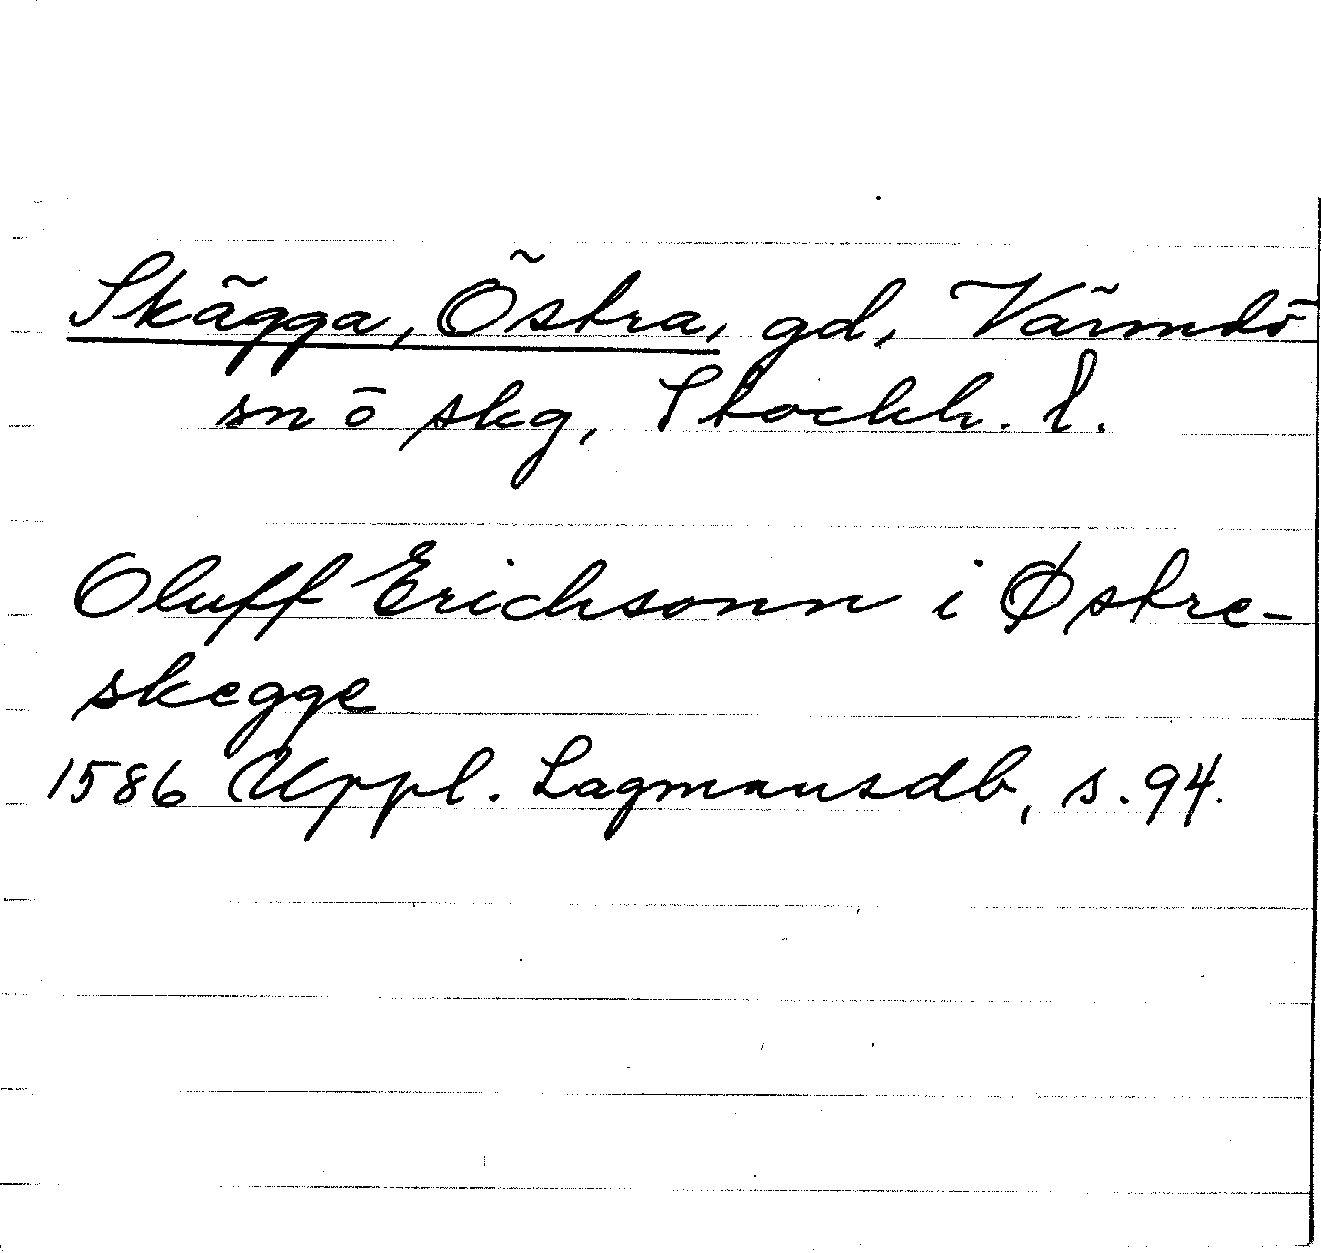 Skägga, Östra, gd, Värmdö
sn ö skg, Stockh. l.
Oluff Erichsonn i Østre-
skegge
1586 Uppl. Lagmansdb, s. 94.